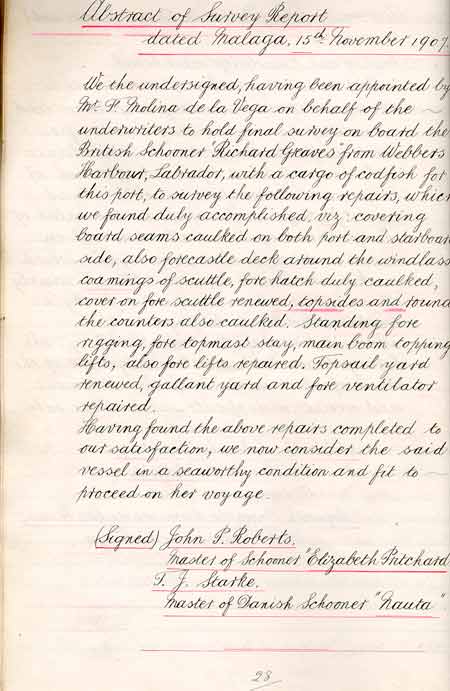 Abstract of Survey Report
dated Malaga, 15th November 1907.
We the undersigned, having been appointed by
Mr. P. Molina de la Vega on behalf of the ~
underwriters to hold final survey on board the
British Schooner "Richard Greaves" from Webbers
Harbour, Labrador, with a cargo of codfish for
this port, to survey the following repairs, which
we found duly accomplished, viz: covering
board seams caulked on both port and starboar
side, also forecastle deck around the windlass
coamings of scuttle, fore hatch duly caulked,
cover on fore scuttle renewed, topsides and round
the counters also caulked. Standing fore
rigging, fore topmast stay, main boom topping
lifts, also fore lifts repaired. Topsail yard
renewed, gallant yard and fore ventilator
repaired.
Having found the above repairs completed to
our satisfaction, we now consider the said
vessel in a seaworthy condition and fit to ~
proceed on her voyage.
(Signed) John P. Roberts.
Master of Schooner "Elizabeth Pritchard
T. J. Starke.
Master of Danish Schooner "Nauta".
28